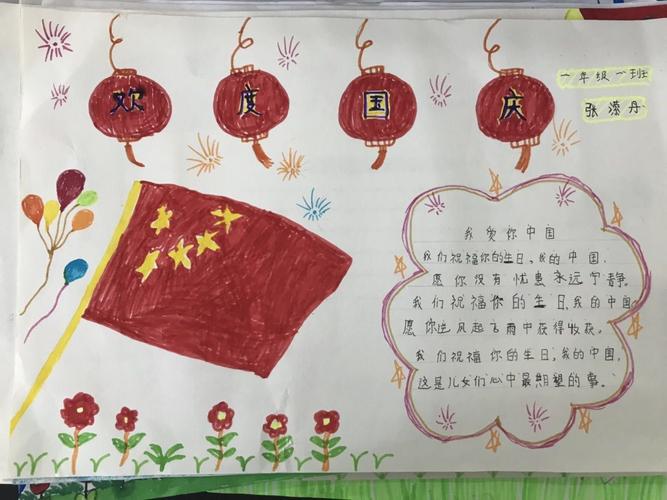 欢度国庆
一年级一班
张漾丹
我爱你中国
我们祝福你的生日、我的中国,
愿你没有忧患永远宁静。
我们祝福你的生日,我的中国
愿你逆风起飞雨中获得收获。
我们祝福你的生日,我的中国,
这是儿女们心中最期望的事。